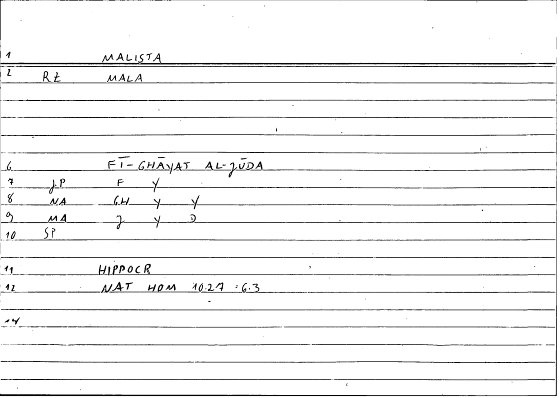 1 MALISTA
2 RZ MALA
6 FĪ-GHĀYAT AL-JŪDA
7 JP F Y
8 NA GH Y Y
9 MA J Y D
10 SP
11 HIPPOCR
12 NAT HOM 10.27 :6.3
14